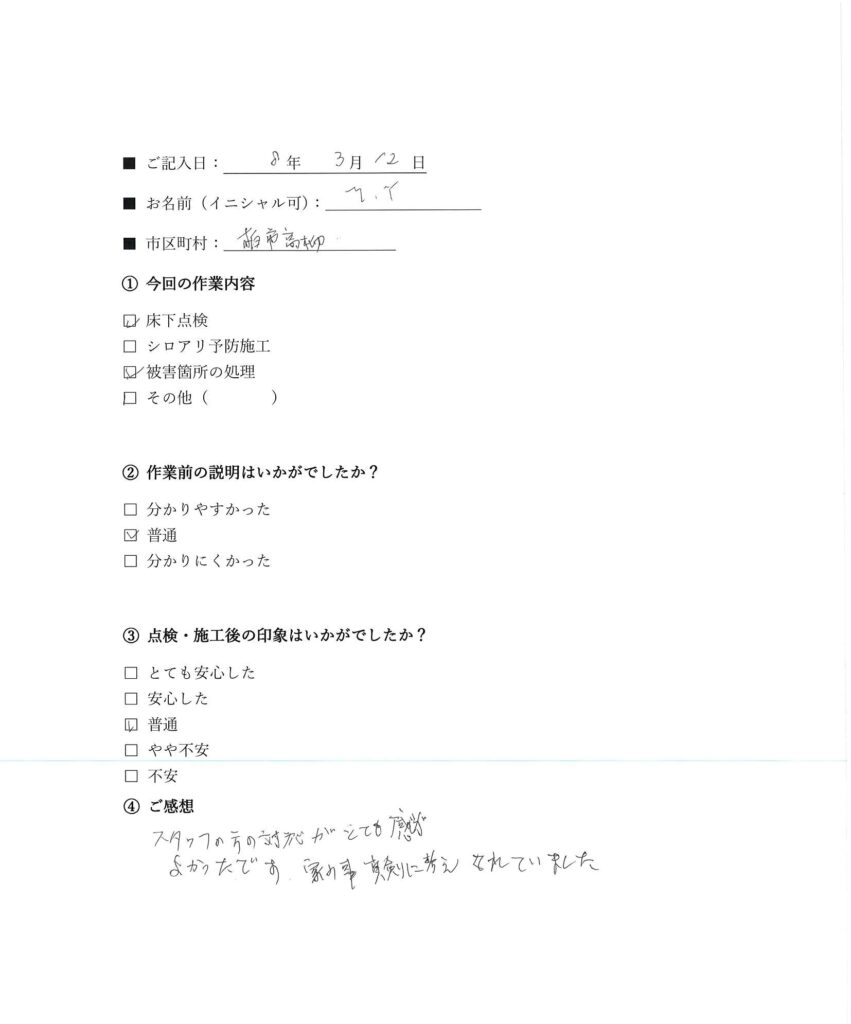 ■ ご記入日： 8年 3月 12日
■ お名前（イニシャル可）： M.Y
■ 市区町村： 柏市高柳
① 今回の作業内容
☑ 床下点検
□ シロアリ予防施工
☑ 被害箇所の処理
□ その他（　　　　）
② 作業前の説明はいかがでしたか？
□ 分かりやすかった
☑ 普通
□ 分かりにくかった
③ 点検・施工後の印象はいかがでしたか？
□ とても安心した
□ 安心した
☑ 普通
□ やや不安
□ 不安
④ ご感想
スタッフの方の対応がとても感じ
よかったです、家の事真剣に考えをれていました